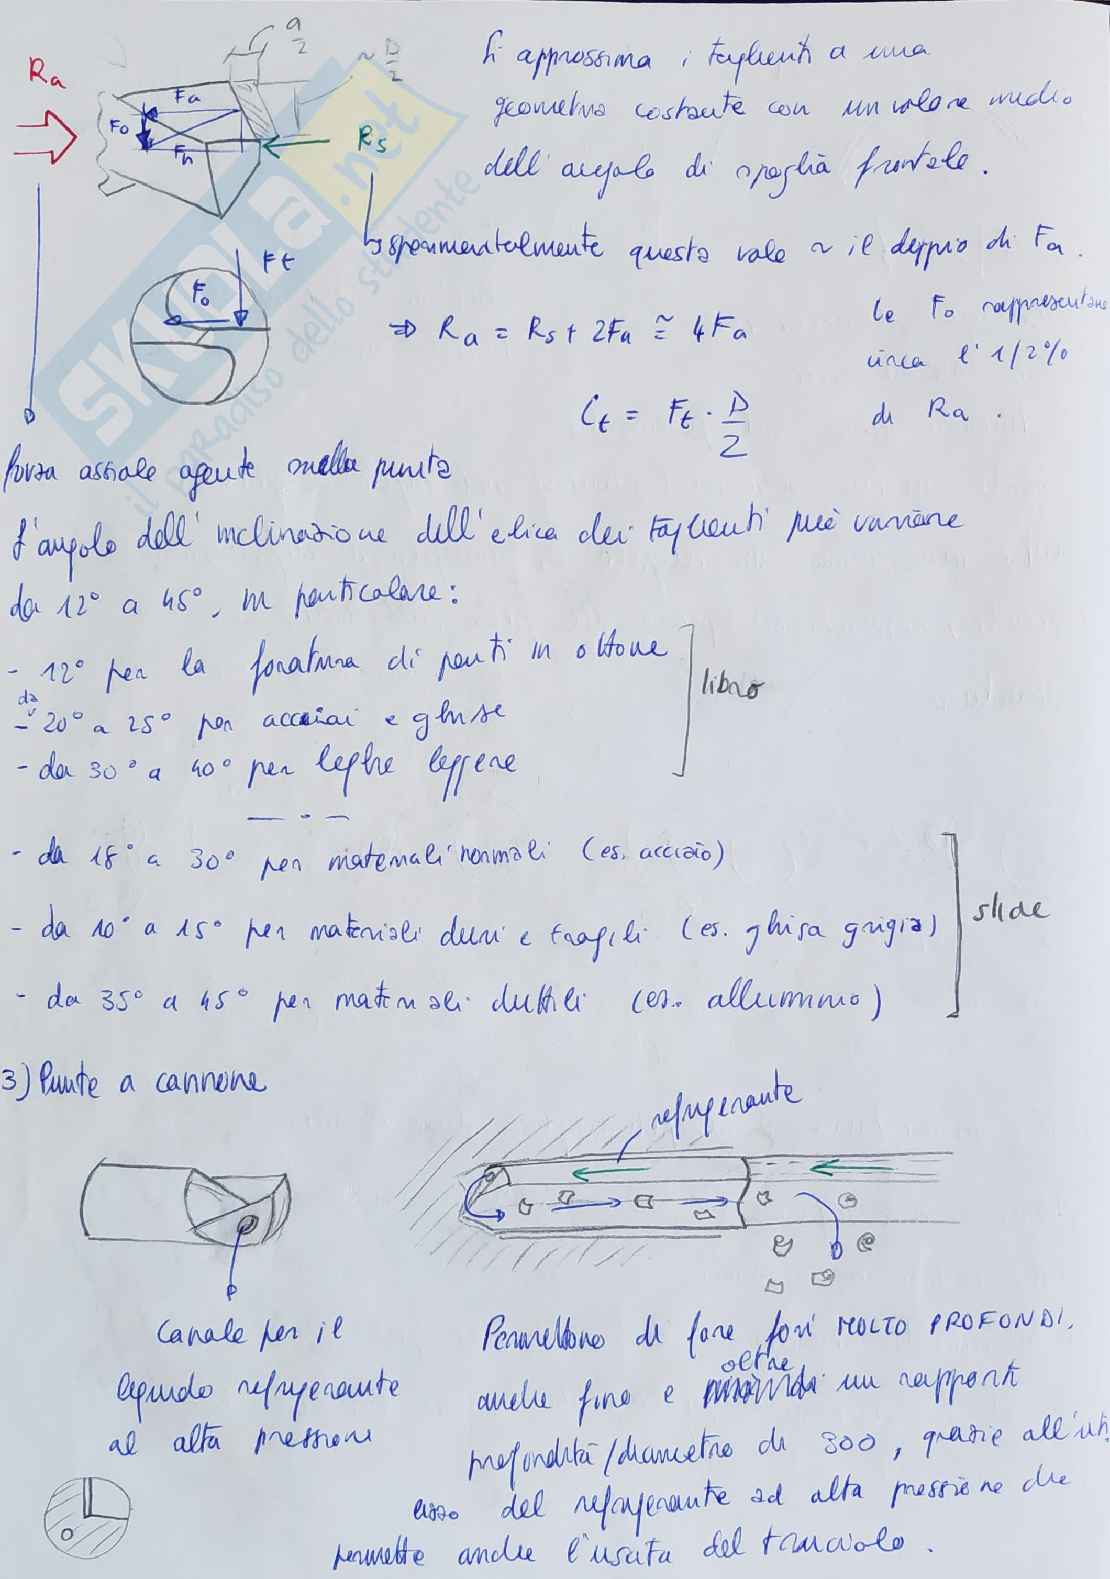 a/2
~ D/2
Ra
Fa
Fo
Fn
Rs
Si approssima i taglienti a una
geometria costante con un valore medio
dell'angolo di spoglia frontale.
sperimentalmente questa vale ~ il doppio di Fa.
Ft
Fo
⇒ Ra = Rs + 2Fa ≅ 4Fa
le Fo rappresentano
circa l'1/2%
di Ra.
Ct = Ft · D/2
forza assiale agente sulla punta
L'angolo dell'inclinazione dell'elica dei taglienti può variare
da 12° a 45°, in particolare:
- 12° per la foratura di parti in ottone
- da 20° a 25° per acciai e ghise
- da 30° a 40° per leghe leggere
libro
— · —
- da 18° a 30° per materiali normali (es. acciaio)
- da 10° a 15° per materiali duri e fragili (es. ghisa grigia)
- da 35° a 45° per materiali duttili (es. alluminio)
slide
3) Punte a cannone
refrigerante
Canale per il
liquido refrigerante
ad alta pressione
Permettono di fare fori MOLTO PROFONDI,
anche fino e oltre un rapporti
profondità/diametro di 300, grazie all'util
izzo del refrigerante ad alta pressione che
permette anche l'uscita del truciolo.
SKUOLA.net
il paradiso dello studente